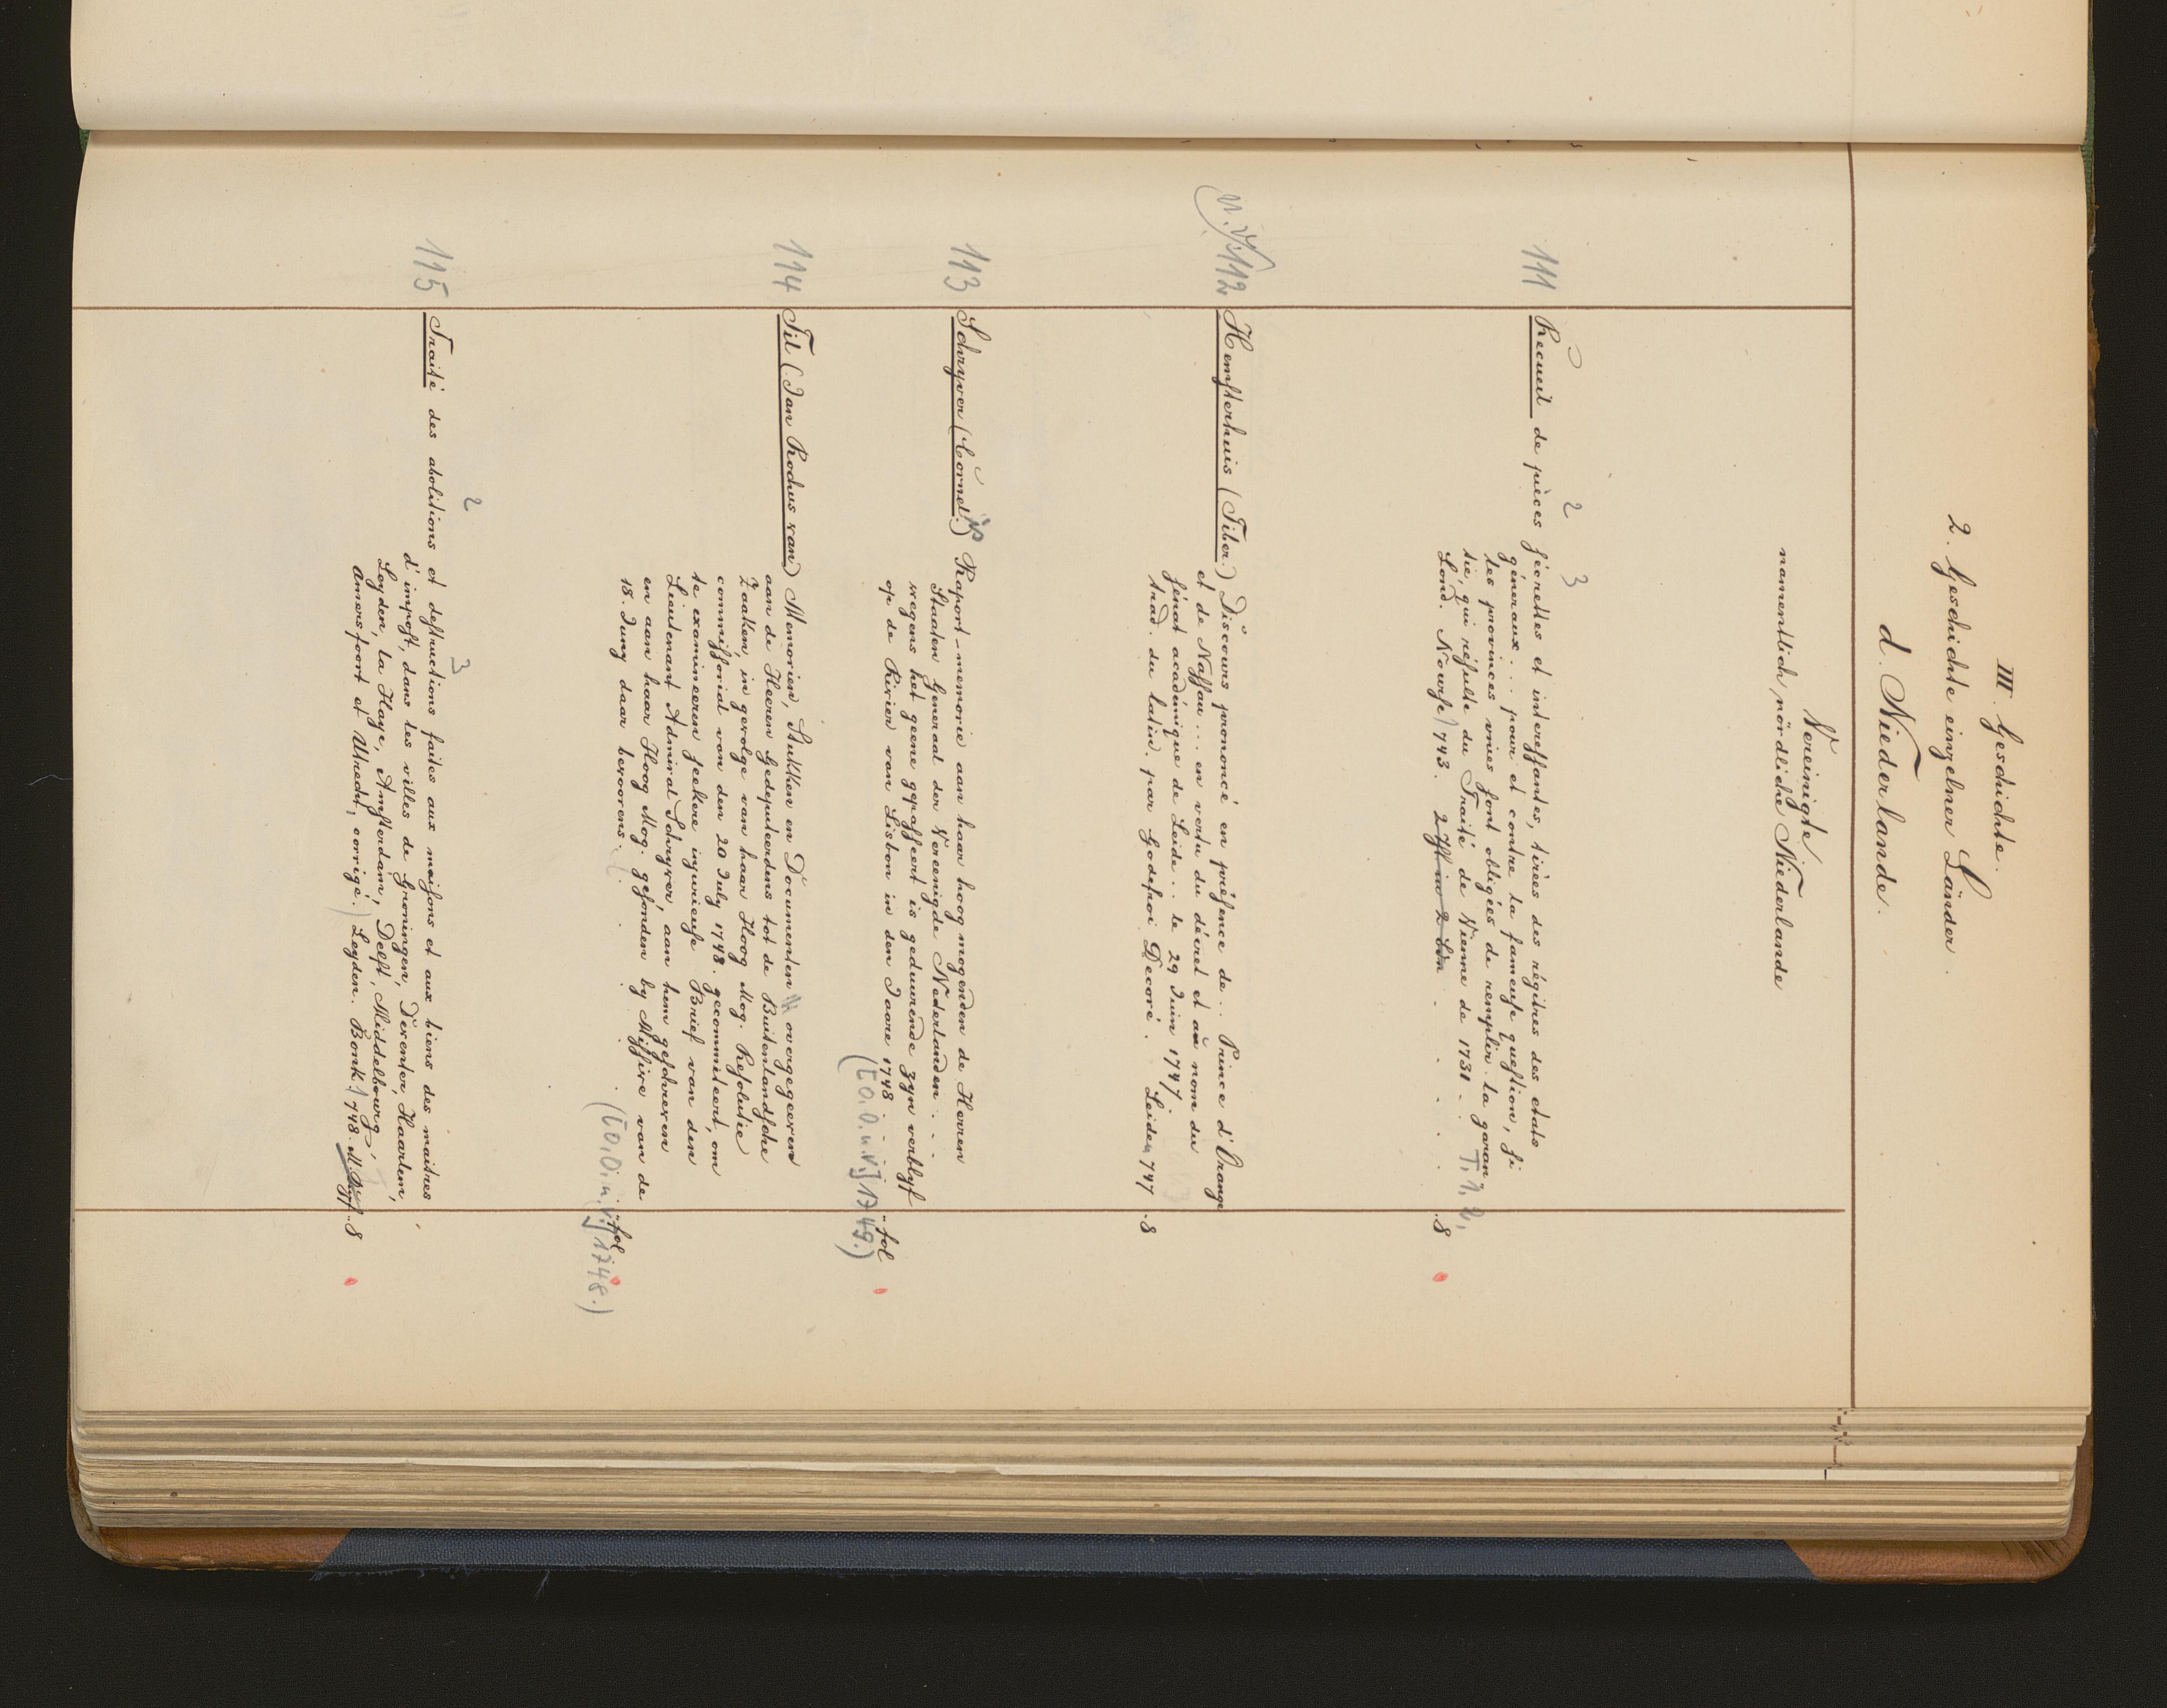 III. Geschichte.
2. Geschichte einzelner Länder.
d. Niederlande.
Vereinigte,
namentlich nördliche Niederlande
2 3
111 Recueil de pièces sécrettes et interessantes, tirées des régitres des etats
généraux... pour et contre la fameuse question, si
les provinces unies sont obligées de remplir la garan-
tie, qui résulte du Traité de Vienne de 1731... T. 1, 2.
Lond. Nourse) 743. 2 Thl in 2 Bdn . . . . . 8
112 Hemsterhuis (Tiber.) Discours prononcé en présence de... Prince d'Orange
et de Nassau... en vertu du décret et au nom du
sénat académique de Leide... le 29 Juin 1747.
trad. du latin. par Godefroi Decoré. Leiden 747 . 8
113 Schryver (Cornelis) Raport-memorie aan haar hoog mogenden de Herren
Staaten Generaal der Vereenigde Nederlanden...
wegens het geene gepasseert is geduurende zyn verblyf
op de Rivier van Lisbon in den Jaare 1748 . . fol
([O. O. u. V.] 1749.)
114 Til (Jan Rochus van) Memorien, Stukken en Documenten overgegeeven
aan de Heeren Gedeputeerdens tot de Buitenlandsche
Zaaken, in gevolge van haar Hoog Mog. Resolutie
commissoriael van den 20 July 1748. gecommiteert, om
te examineeren seekere injurieuse Brief van den
Lieutenant Admiral Schryver, aan hem geschreven
en aan haar Hoog Mog. gesonden by Missive van de
18. Juny daar bevoorens. . . . fol
([O. O. u. V.] 1748.)
2 3
115 Traité des abolitions et destructions faites aux maisons et aux biens des maitres
d'impost, dans les villes de Groningen, Deventer, Haarlem,
Leyden, la Haye, Amsterdam, Delft, Middelbourg,
Amersfoort et Utrecht, corrigé.) Leyden. Bonk.) 748. 8